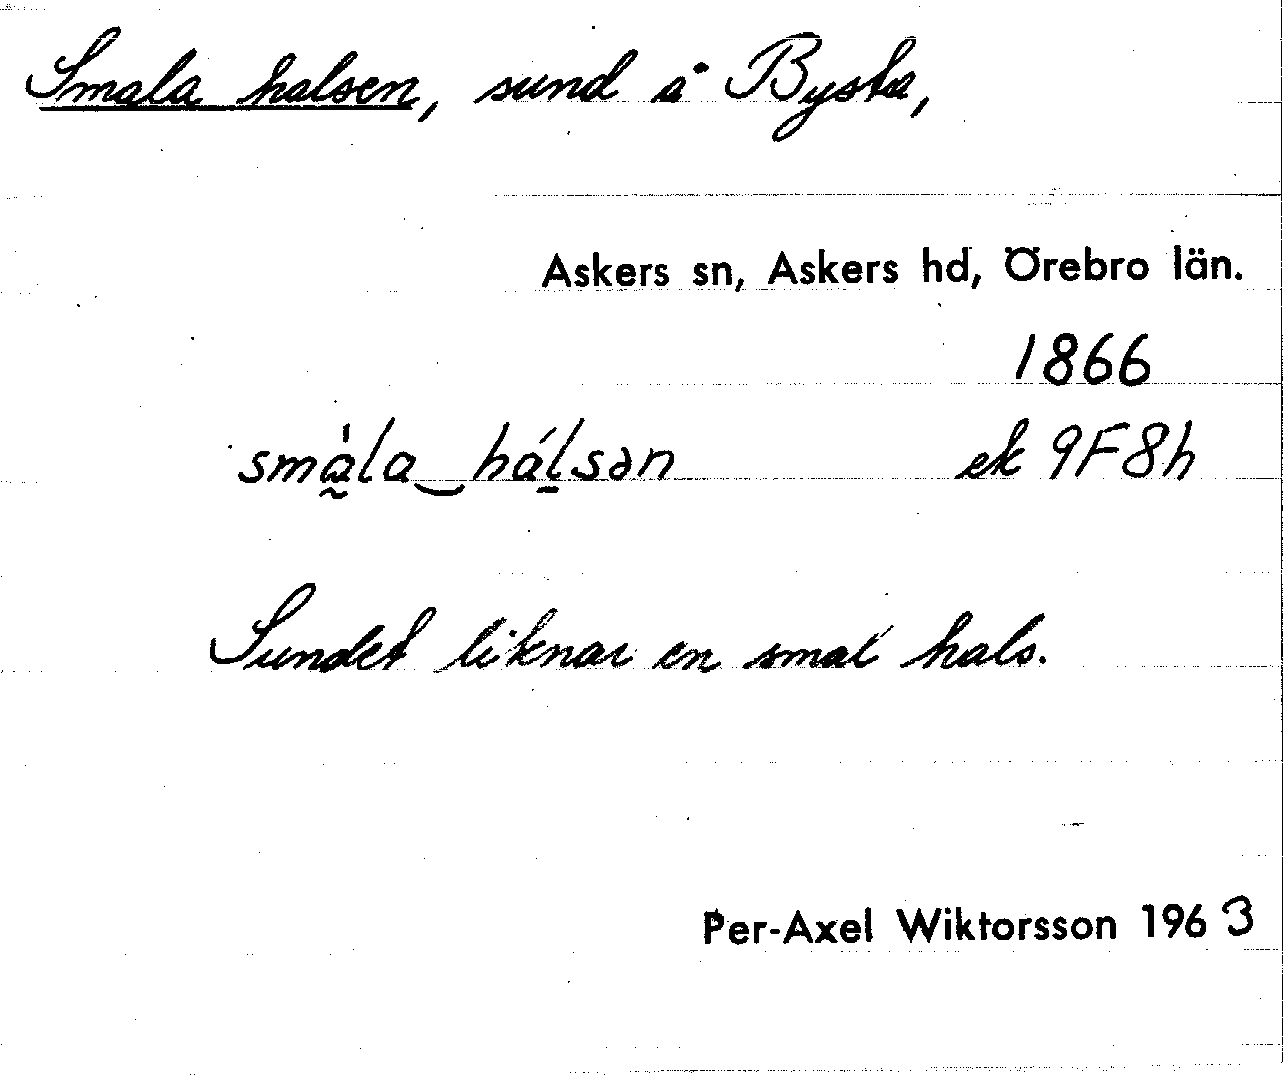 Smala halsen, sund å Bysta,
Askers sn, Askers hd, Örebro län.
1866
smàla‿hálsən ek 9F8h
Sundet liknar en smal hals.
Per-Axel Wiktorsson 1963